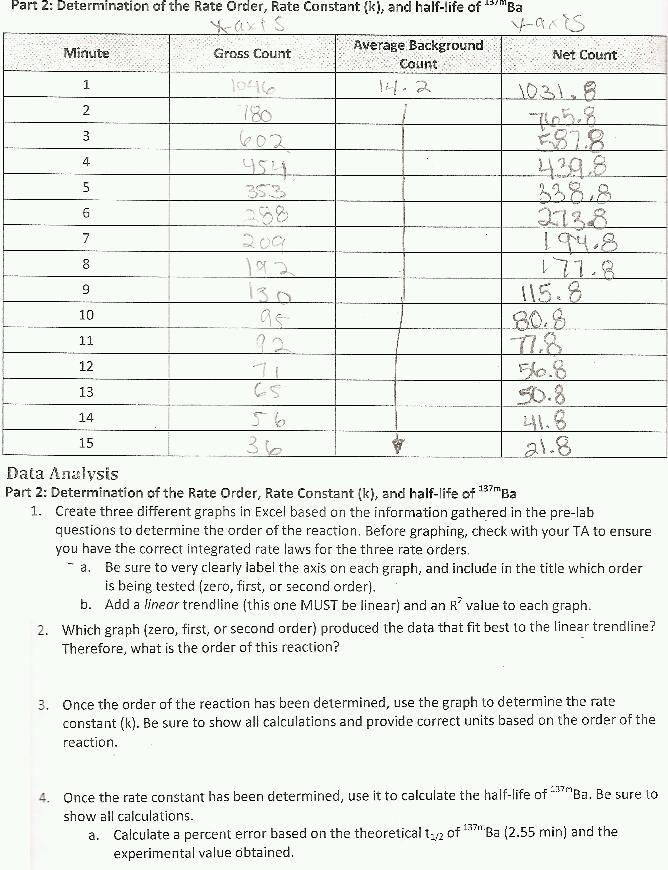 Part 2: Determination of the Rate Order, Rate Constant (k), and half-life of 137mBa
x-axis y-axis
Minute Gross Count Average Background Count Net Count
1 1046 14.2 1031.8
2 780 765.8
3 602 587.8
4 454 439.8
5 353 338.8
6 288 273.8
7 209 194.8
8 192 177.8
9 130 115.8
10 95 80.8
11 92 77.8
12 71 56.8
13 65 50.8
14 56 41.8
15 36 21.8
Data Analysis
Part 2: Determination of the Rate Order, Rate Constant (k), and half-life of 137mBa
1. Create three different graphs in Excel based on the information gathered in the pre-lab
questions to determine the order of the reaction. Before graphing, check with your TA to ensure
you have the correct integrated rate laws for the three rate orders.
a. Be sure to very clearly label the axis on each graph, and include in the title which order
is being tested (zero, first, or second order).
b. Add a linear trendline (this one MUST be linear) and an R² value to each graph.
2. Which graph (zero, first, or second order) produced the data that fit best to the linear trendline?
Therefore, what is the order of this reaction?
3. Once the order of the reaction has been determined, use the graph to determine the rate
constant (k). Be sure to show all calculations and provide correct units based on the order of the
reaction.
4. Once the rate constant has been determined, use it to calculate the half-life of 137mBa. Be sure to
show all calculations.
a. Calculate a percent error based on the theoretical t1/2 of 137mBa (2.55 min) and the
experimental value obtained.